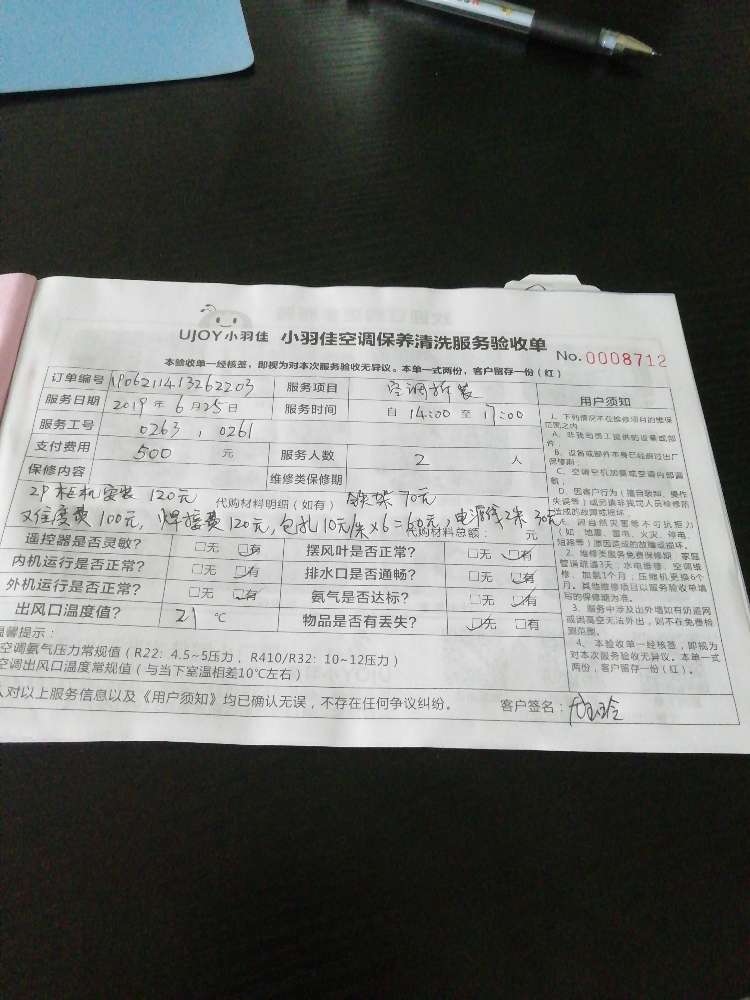 UJOY小羽佳 小羽佳空调保养清洗服务验收单 No.0008712
本验收单一经核签，即视为对本次服务验收无异议。本单一式两份，客户留存一份（红）
订单编号 服务项目 空调拆装
服务日期 2019年6月25日 服务时间 自14:00至17:00
服务工号 0263，0261
支付费用 500 元 服务人数 2 人
保修内容 维修类保修期
2P柜机安装 120元 代购材料明细（如有） 铁架 70元
费100元，焊接费120元，包扎10元/米×6=60元，电源线2米30元
代购材料总额： 元
遥控器是否灵敏？ □无 □有 摆风叶是否正常？ □无 □有
内机运行是否正常？ □无 □有 排水口是否通畅？ □无 □有
外机运行是否正常？ □无 □有 氨气是否达标？ □无 □有
出风口温度值？ 21 ℃ 物品是否有丢失？ □无 □有
温馨提示：
空调氨气压力常规值（R22：4.5~5压力，R410/R32：10~12压力）
空调出风口温度常规值（与当下室温相差10℃左右）
人对以上服务信息以及《用户须知》均已确认无误，不存在任何争议纠纷。 客户签名：
用户须知
1、下列情况不在维修项目的整保
范围之内
A、非我司员工提供的设量或部
件；
B、设备或部件本身已经超过出厂
保修期；
C、空调空机加氨或空调内部漏
氨；
D、因客户行为（擅自联知、操作
失误等）或另请非我司人员检修所
造成的故障或损坏
E、因自然灾害等不可抗拒力
（如 地震、雷电、火灾、停电、
短路等）原因造成的故障或损坏。
2、维修类服务免费保修期：家庭
管道疏通3天；水电维修、空调维
修、加氨1个月；压缩机更换6个
月。其他维修项目以服务验收单填
写的保修期为准。
3、服务中涉及出外墙如有防盗网
或因高空无法外出，则不在免费检
测范围。
4、本验收单一经核签，即视为
对本次服务验收无异议。本单一式
两份，客户留存一份（红）。